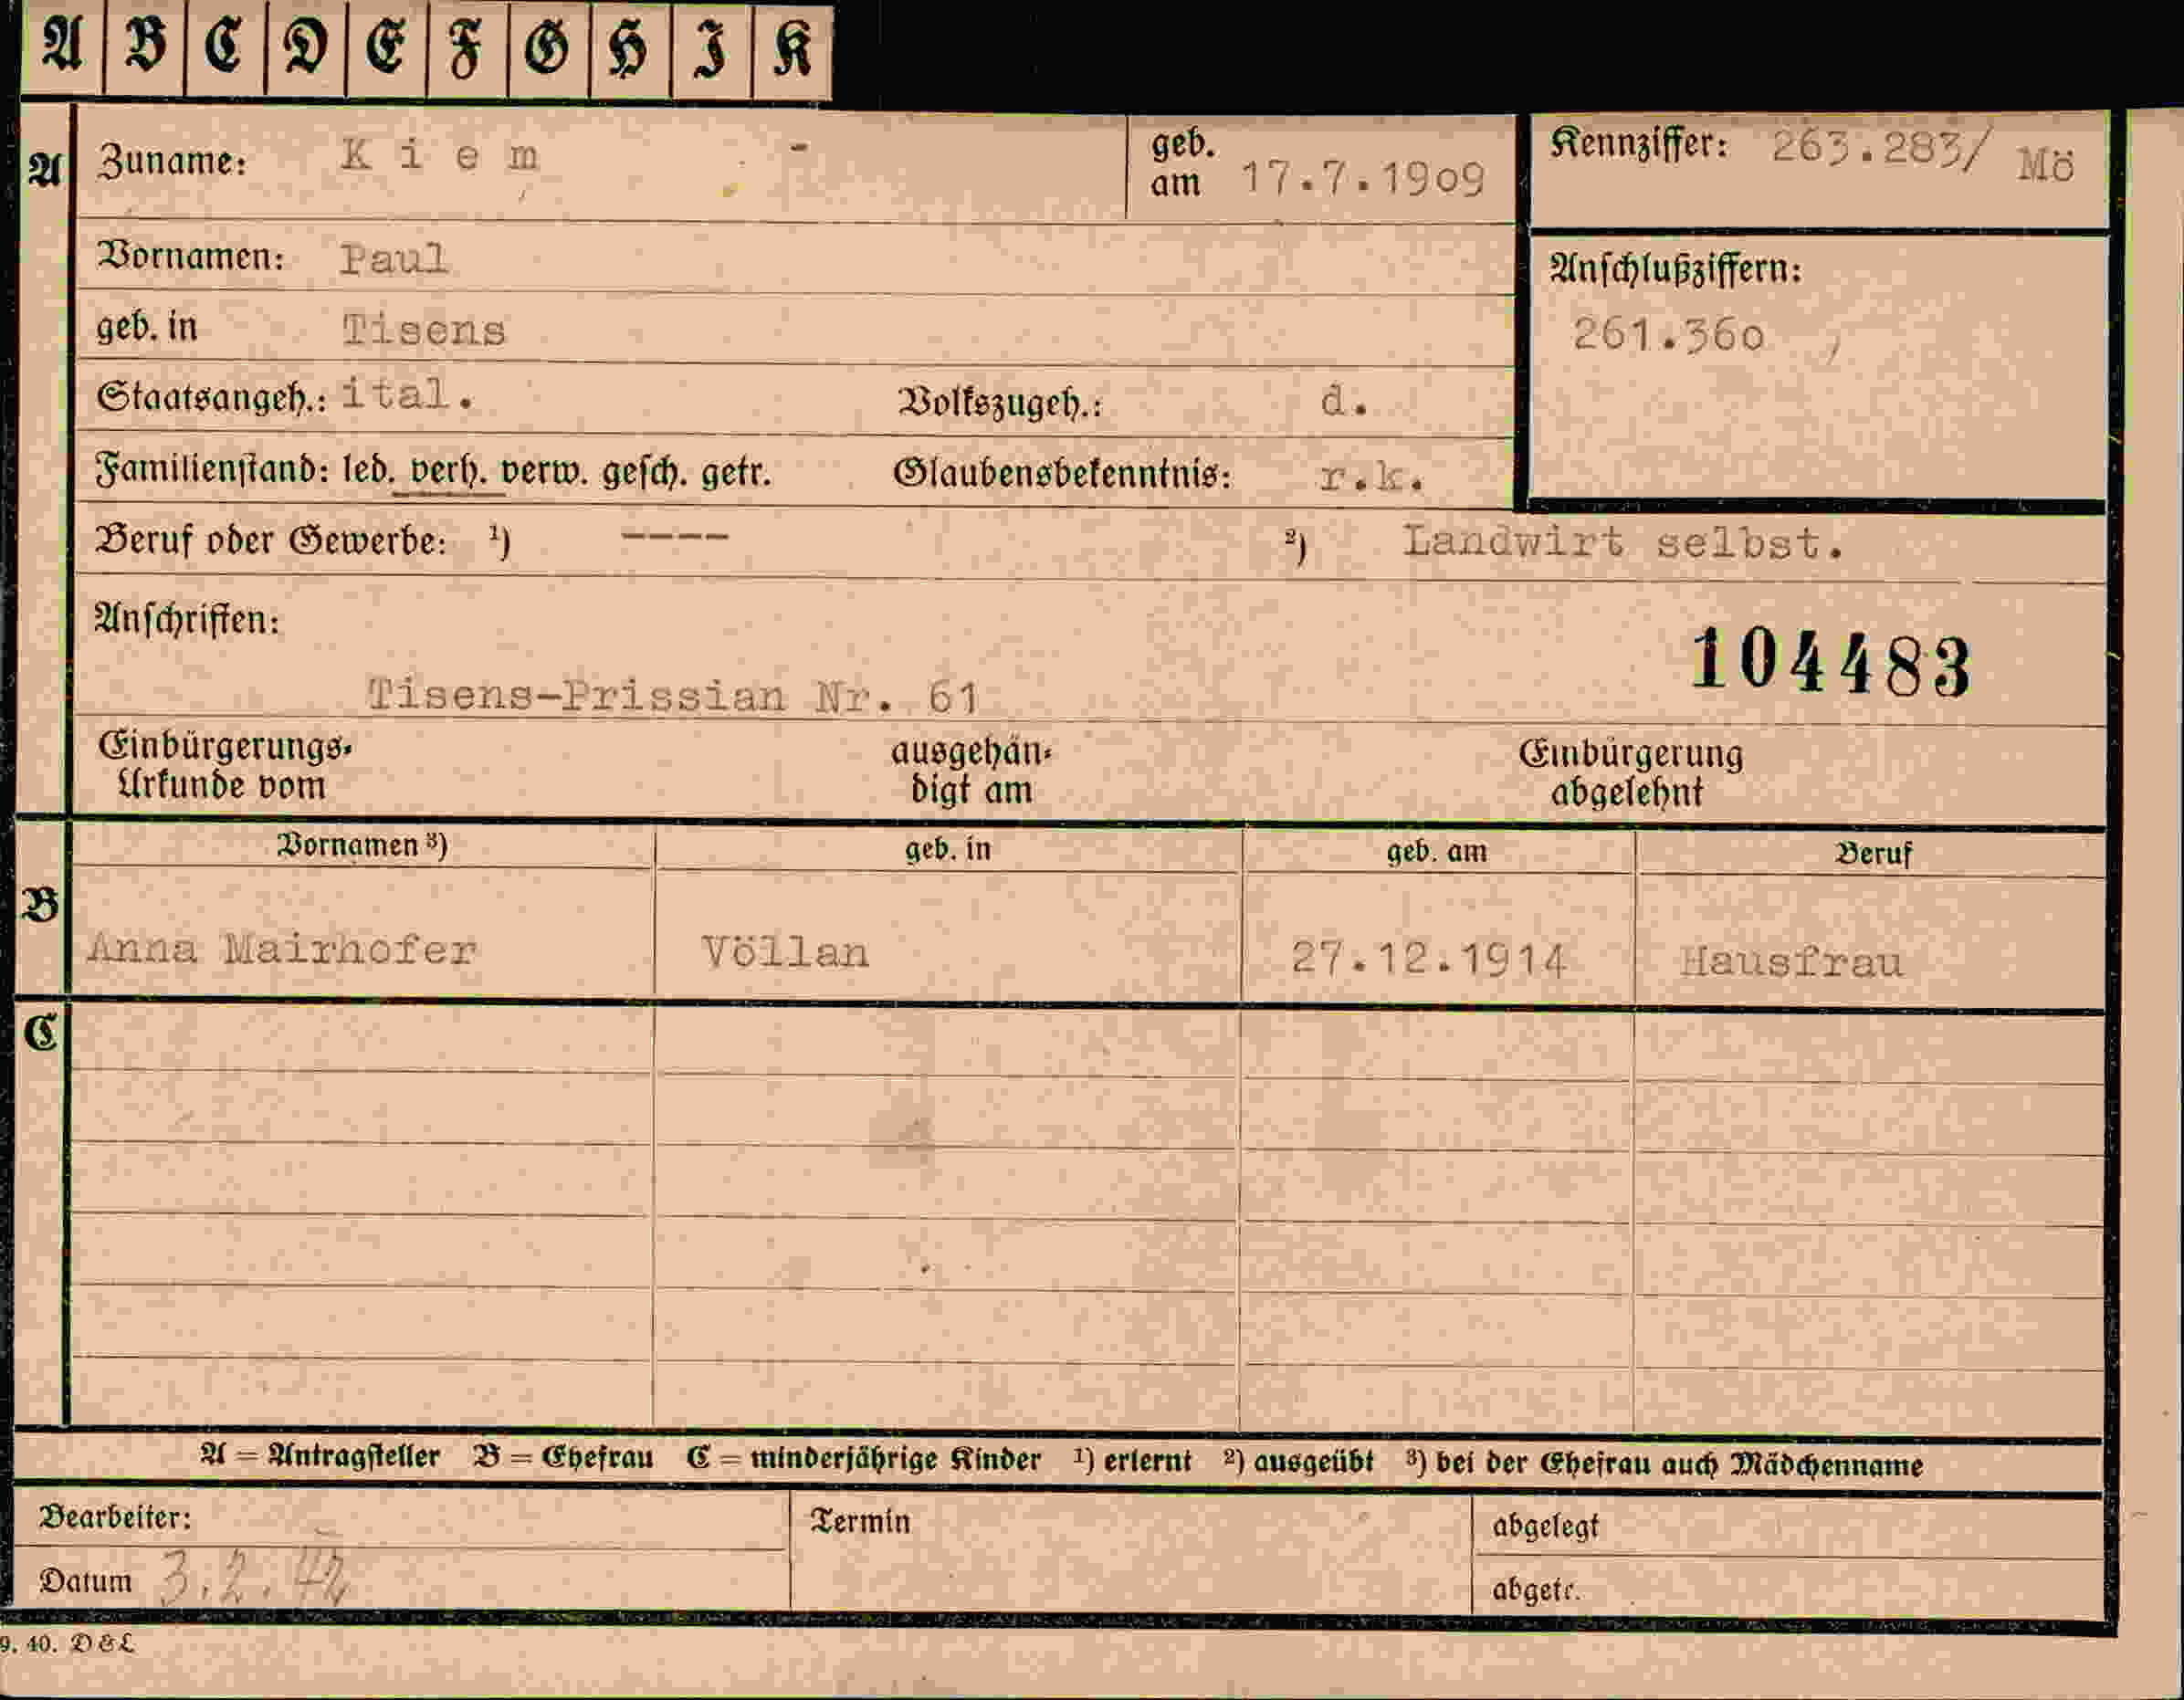 A B C D E F G H I K
A Zuname: Kiem - geb. am 17.7.19o9 Kennziffer: 263.283/ Mö
Vornamen: Paul
Anschlußziffern:
geb. in Tisens 261.36o
Staatsangeh.: ital. Volkszugeh.: d.
Familienstand: led. verh. verw. gesch. getr. Glaubensbekenntnis: r.k.
Beruf oder Gewerbe: 1) ---- 2) Landwirt selbst.
Anschriften:
104483
Tisens-Prissian Nr. 61
Einbürgerungs- ausgehän- Einbürgerung
Urkunde vom digt am abgelehnt
Vornamen 3) geb. in geb. am Beruf
B
Anna Mairhofer Völlan 27.12.1914 Hausfrau
C
A = Antragsteller B = Ehefrau C = minderjährige Kinder 1) erlernt 2) ausgeübt 3) bei der Ehefrau auch Mädchenname
Bearbeiter: Termin abgelegt
Datum 3.2.42 abgetr.
9. 40. D&L